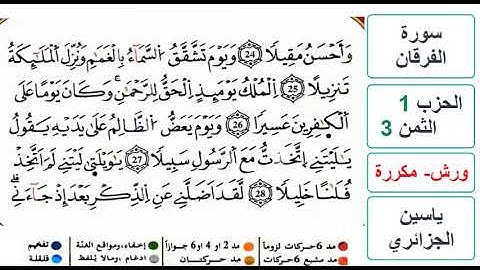 وَأَحْسَنُ مَقِيلًا 24 وَيَوْمَ تَشَّقَّقُ السَّمَآءُ بِالْغَمَٰمِ وَنُزِّلَ الْمَلَٰٓئِكَةُ
تَنزِيلًا 25 اِلْمُلْكُ يَوْمَئِذٍ اِلْحَقُّ لِلرَّحْمَٰنِ وَكَانَ يَوْمًا عَلَى
اَلْكَٰفِرِينَ عَسِيرًا 26 وَيَوْمَ يَعَضُّ الظَّالِمُ عَلَىٰ يَدَيْهِ يَقُولُ
يَٰلَيْتَنِي اِتَّخَذْتُ مَعَ الرَّسُولِ سَبِيلًا 27 يَٰوَيْلَتَىٰ لَيْتَنِي لَمَ اَتَّخِذْ
فُلَٰنًا خَلِيلًا 28 لَّقَدَ اَضَلَّنِي عَنِ الذِّكْرِ بَعْدَ إِذْ جَآءَنِي
سورة
الفرقان
الحزب 1
الثمن 3
ورش- مكررة
ياسين
الجزائري
مد 6 حركات لزوماً
مد 2 او 4 او 6 جوازاً
إخفاء، ومواقع الغنة
تفخيم
مد مشبع 6 حركات
مد حركتان
ادغام ، ومالا يُلفظ
قلقلة